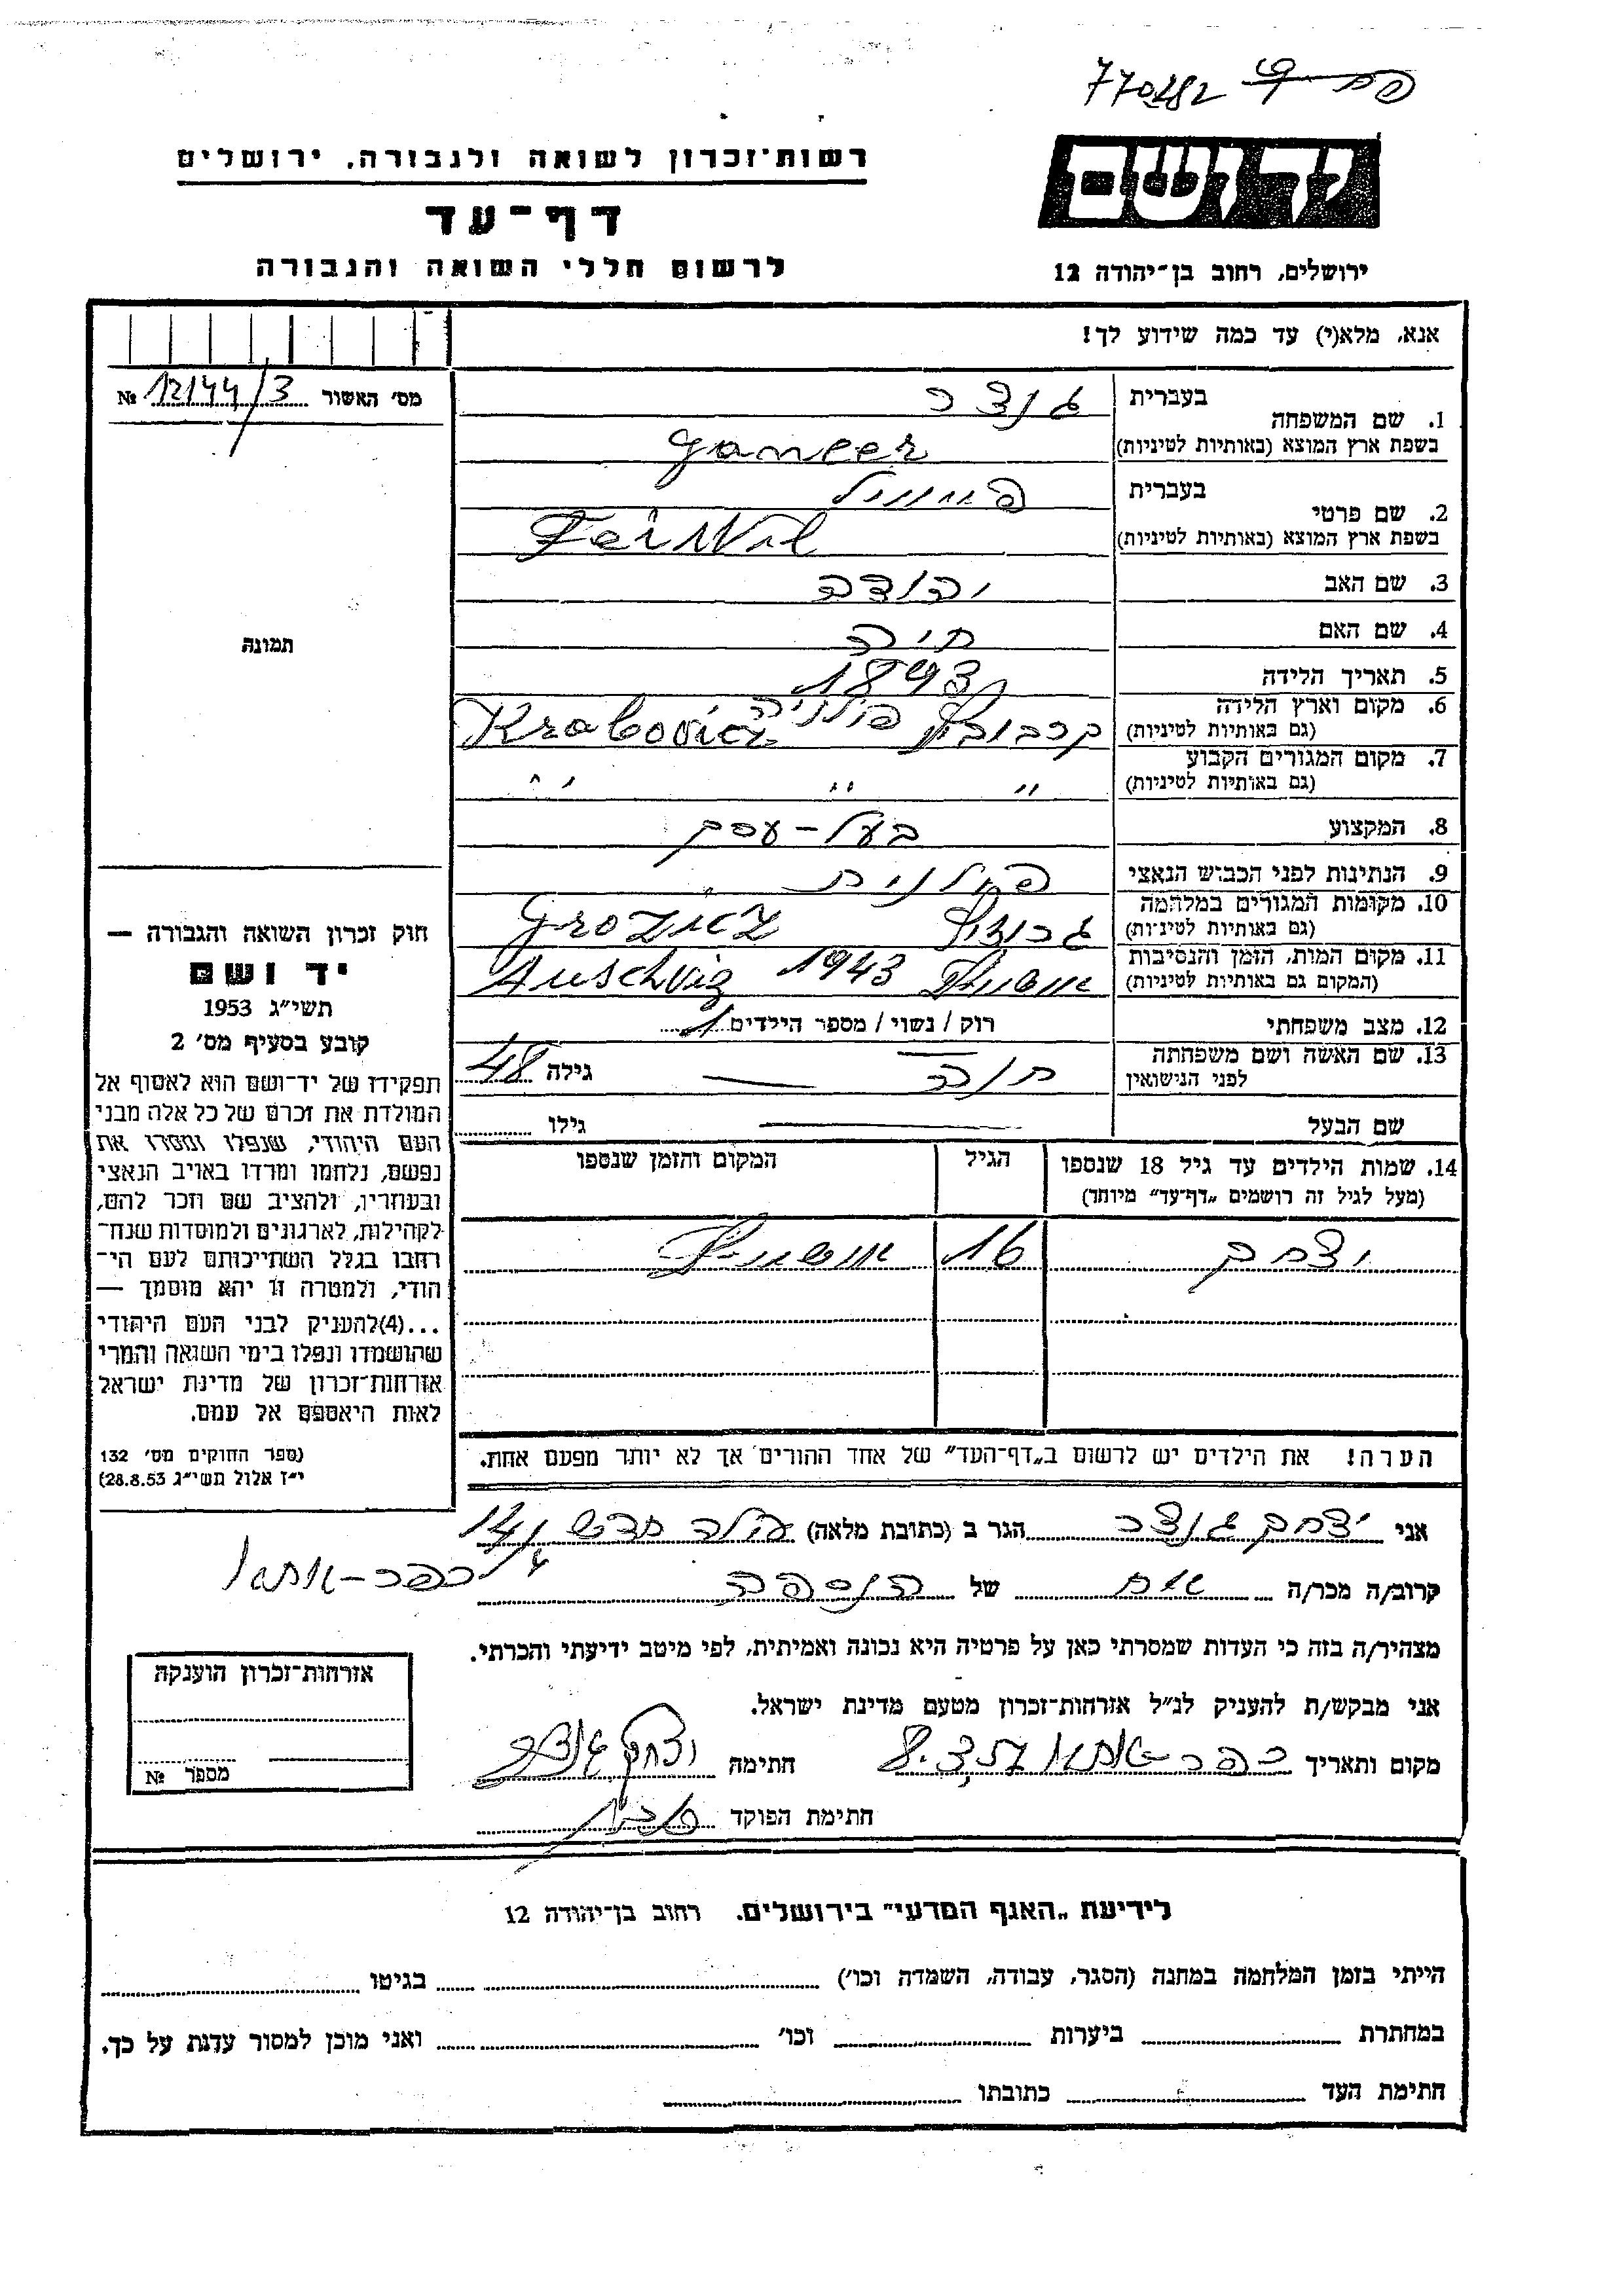 770282
יד ושם
רשות־זכרון לשואה ולגבורה, ירושלים
דף־עד
לרשום חללי השואה והגבורה
ירושלים, רחוב בן־יהודה 12
אנא, מלא(י) עד כמה שידוע לך!
מס׳ האשור 12144/3 №
1. שם המשפחה
בעברית גנצר
בשפת ארץ המוצא (באותיות לטיניות) Gancer
2. שם פרטי
בעברית פייוויל
בשפת ארץ המוצא (באותיות לטיניות) Feiwil
3. שם האב יהודה
4. שם האם חיה
5. תאריך הלידה 1893
6. מקום וארץ הלידה
(גם באותיות לטיניות) פולניה
7. מקום המגורים הקבוע
(גם באותיות לטיניות) " " "
8. המקצוע בעל-עסק
9. הנתינות לפני הכבוש הנאצי פולנית
10. מקומות המגורים במלחמה
(גם באותיות לטיניות)
11. מקום המות, הזמן והנסיבות
(המקום גם באותיות לטיניות) אושוויץ 1943 Auschvig
12. מצב משפחתי רוק / נשוי / מספר הילדים 1
13. שם האשה ושם משפחתה
לפני הנישואין חוה — גילה 48
שם הבעל — גילו
14. שמות הילדים עד גיל 18 שנספו
(מעל לגיל זה רושמים „דף־עד״ מיוחד)
הגיל
המקום והזמן שנספו
יצחק 16 אושוויץ
הערה! את הילדים יש לרשום ב„דף־העד״ של אחד ההורים אך לא יותר מפעם אחת.
תמונה
חוק זכרון השואה והגבורה —
יד ושם
תשי״ג 1953
קובע בסעיף מס׳ 2
תפקידו של יד־ושם הוא לאסוף אל
המולדת את זכרם של כל אלה מבני
העם היהודי, שנפלו ומסרו את
נפשם, נלחמו ומרדו באויב הנאצי
ובעוזריו, ולהציב שם וזכר להם,
לקהילות, לארגונים ולמוסדות שנח־
רבו בגלל השתייכותם לעם הי־
הודי, ולמטרה זו יהא מוסמך —
...(4)להעניק לבני העם היהודי
שהושמדו ונפלו בימי השואה והמרי
אזרחות־זכרון של מדינת ישראל
לאות היאספם אל עמם.
(ספר החוקים מס׳ 132
י״ז אלול תשי״ג 28.8.53)
אני יצחק גנצר הגר ב (כתובת מלאה)
כפר-אתא
קרוב/ה מכר/ה אח של הנספה
מצהיר/ה בזה כי העדות שמסרתי כאן על פרטיה היא נכונה ואמיתית, לפי מיטב ידיעתי והכרתי.
אני מבקש/ת להעניק לנ״ל אזרחות־זכרון מטעם מדינת ישראל.
מקום ותאריך כפר-אתא חתימה יצחק גנצר
חתימת הפוקד
אזרחות־זכרון הוענקה
מספר №
לידיעת „האגף המדעי״ בירושלים. רחוב בן־יהודה 12
הייתי בזמן המלחמה במחנה (הסגר, עבודה, השמדה וכו׳) בגיטו
במחתרת ביערות וכו׳ ואני מוכן למסור עדות על כך.
חתימת העד כתובתו